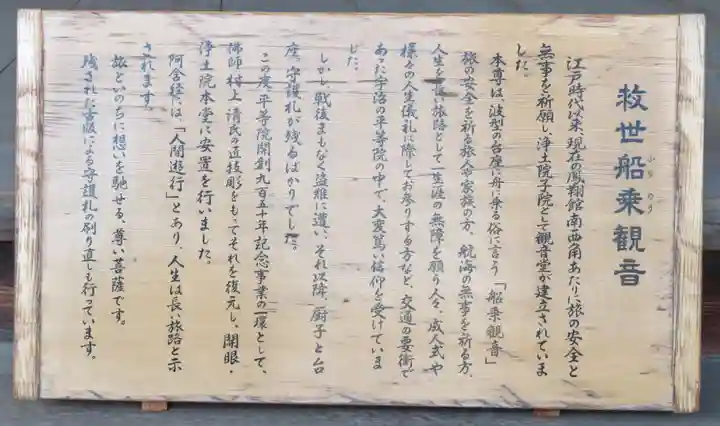 救世船乗観音
ふなのり
江戸時代以来、現在の鳳翔館南西角あたりに旅の安全と
無事を祈願し、浄土院子院として観音堂が建立されていま
した。
本尊は、波型の台座に舟に乗る俗に言う「船乗観音」
旅の安全を祈る旅人や家族の方、航海の無事を祈る方、
人生を長い旅路として一生涯の無障を願う人々、成人式や
様々の人生儀礼に際してお参りする方など、交通の要衝で
あった宇治の平等院の中で、大変篤い信仰を受けていま
した。
しかし、戦後まもなく盗難に遭い、それ以降、厨子と台
座、守護札が残るばかりでした。
この度、平等院開創九百五十年記念事業の一環として、
佛師 村上清氏の直技彫をもってそれを復元し、開眼・
浄土院本堂に安置を行いました。
阿含経に、「人間遊行」とあり、人生は長い旅路と示
されます。
旅といのちに想いを馳せる、尊い菩薩です。
残された古版による守護札の刷り直しも行っています。